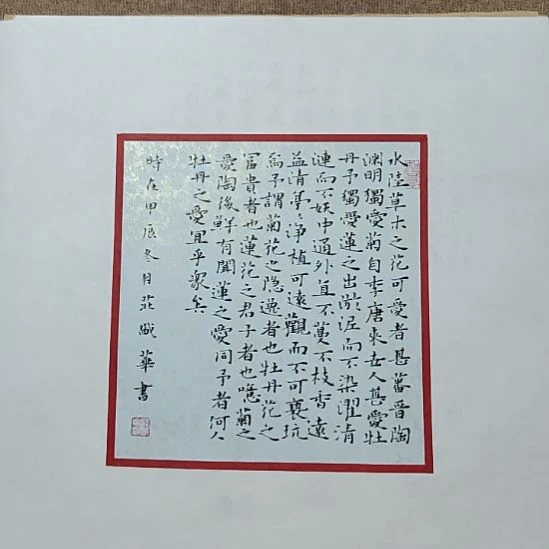 水陸草木之花可愛者甚蕃晉陶
渊明獨愛菊自李唐來世人甚愛牡
丹予獨愛蓮之出淤泥而不染濯清
漣而不妖中通外直不蔓不枝香遠
益清亭〻淨植可遠觀而不可褻玩
焉予謂菊花之隐逸者也牡丹花之
富貴者也蓮花之君子者也噫菊之
愛陶後鮮有聞蓮之愛同予者何人
牡丹之愛宜乎衆矣
時在甲辰冬月莊 華書